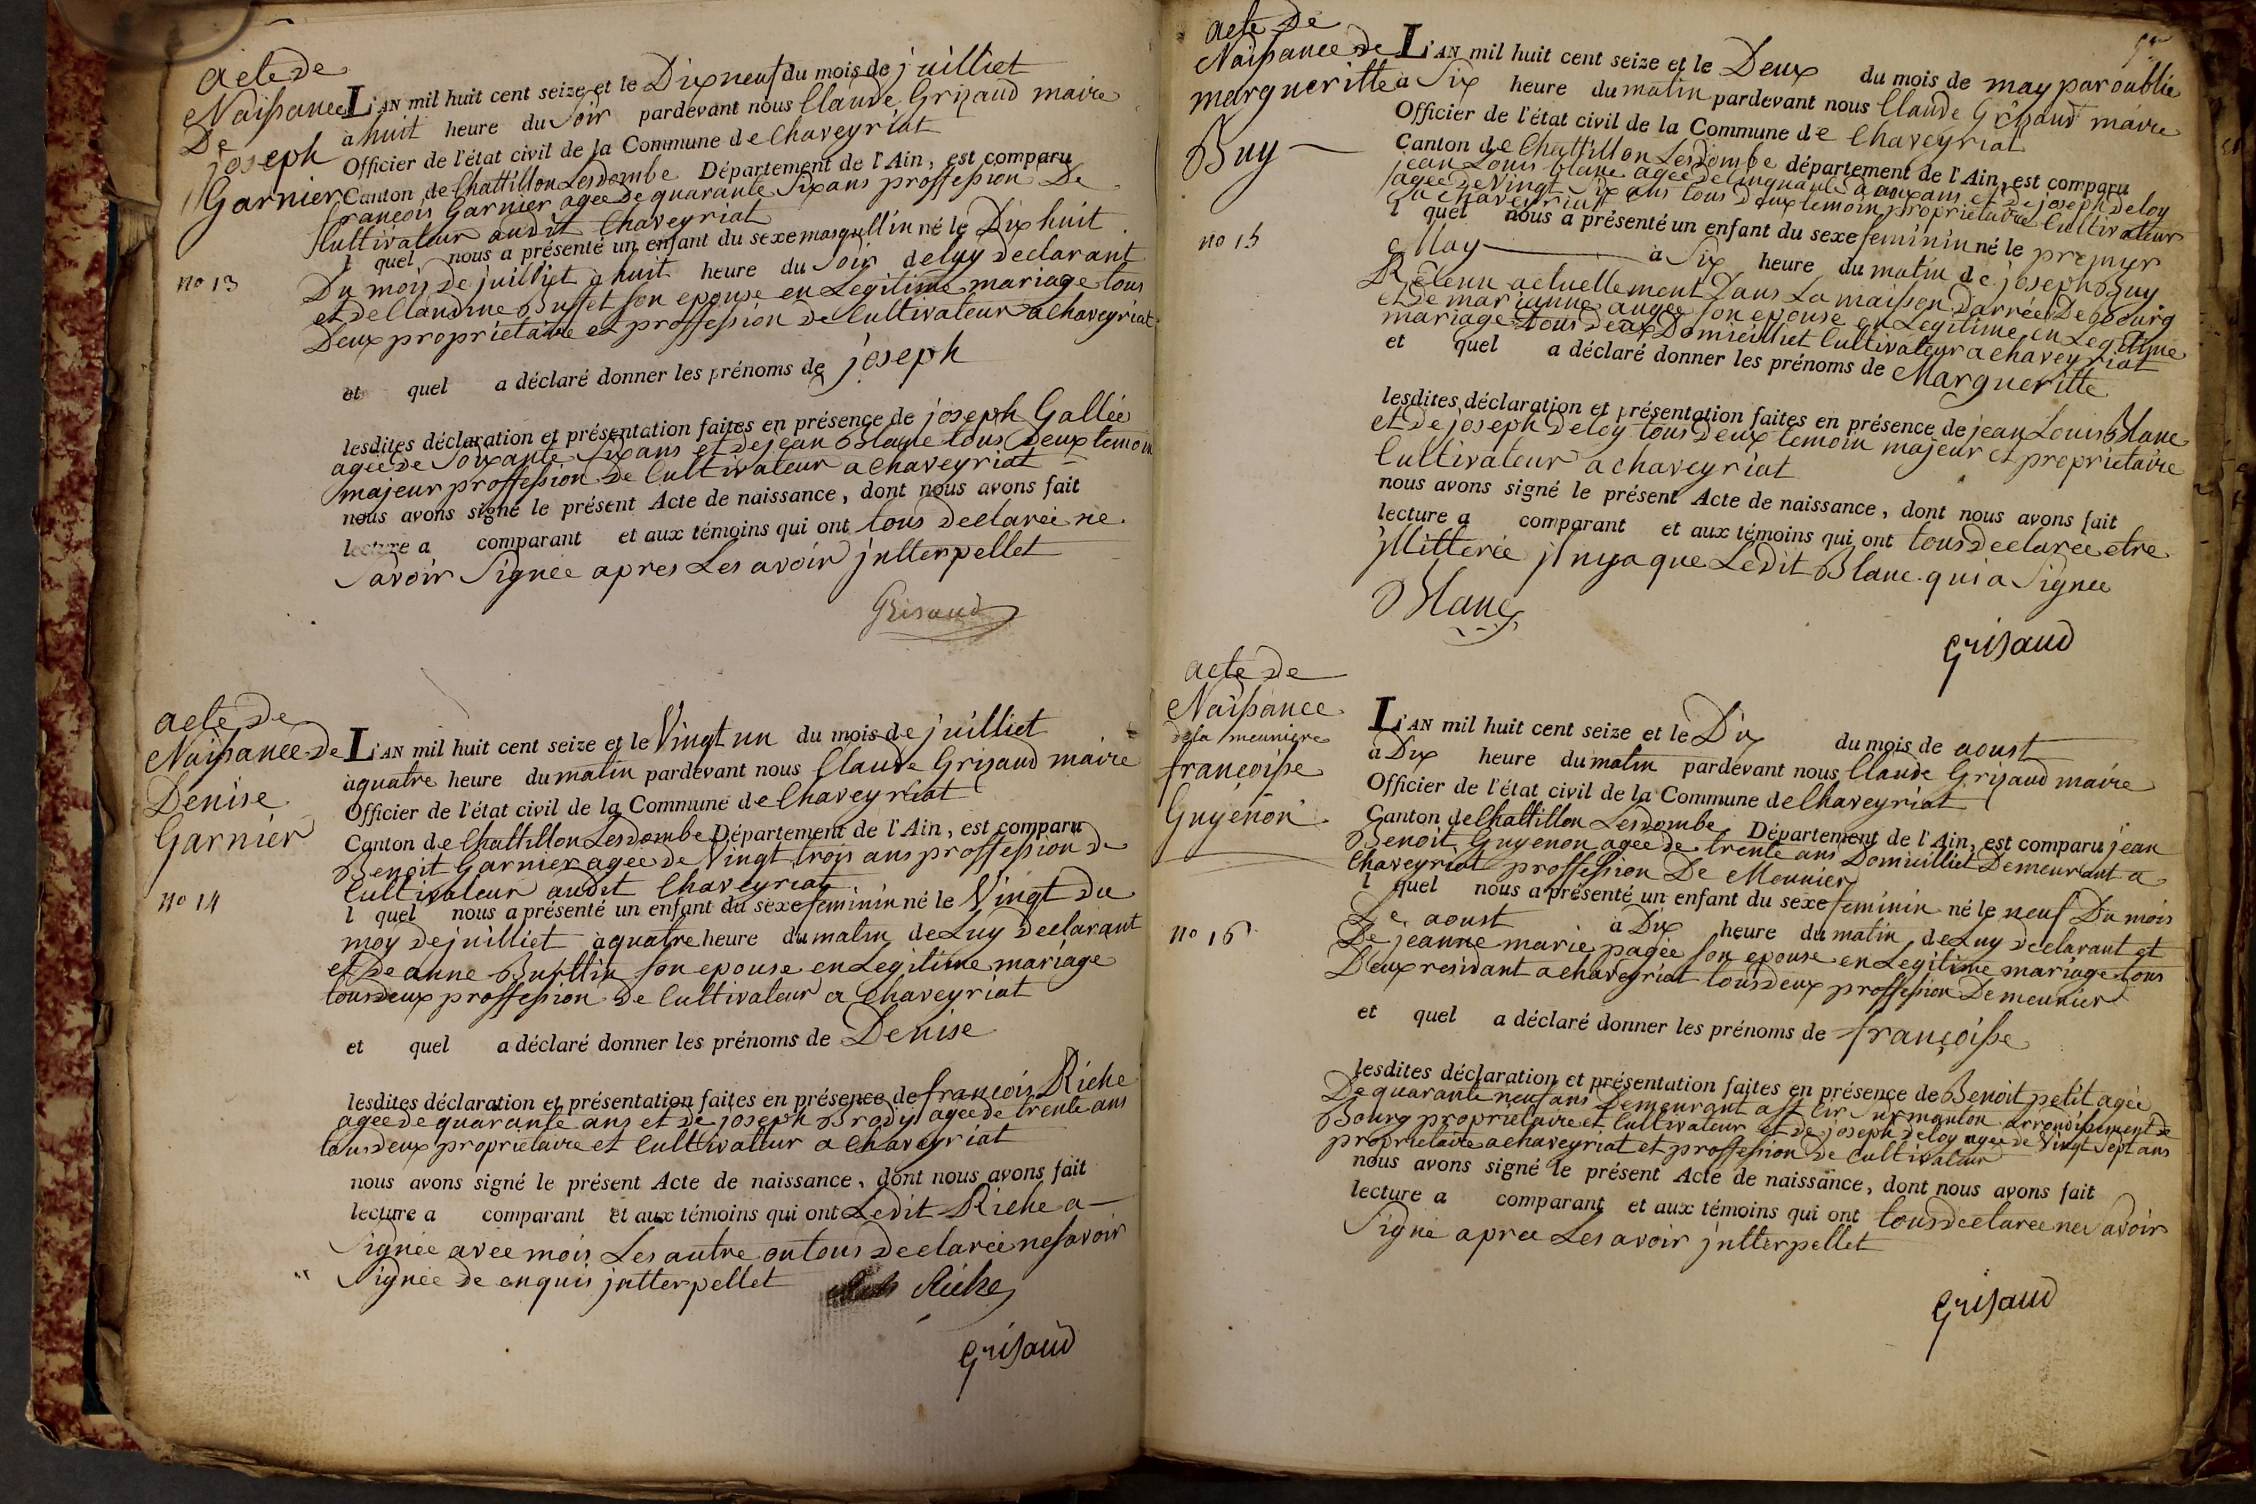 acte de
Naissance
De
joseph
Garnier
no 13
L'AN mil huit cent seize et le Dix neuf du mois de juilliet
à huit heure du Soir pardevant nous Claude Grisaud maire
Officier de l'état civil de la Commune de Chaveyriat
Canton de Chattillon Lesdombe Département de l'Ain, est comparu
françois Garnier agee de quarante Six ans proffession De
Cultivateur audit Chaveyriat
l quel nous a présenté un enfant du sexe masqullin né le Dix huit
Du mois de juilliet à huit heure du Soir de luy declarant
et de Claudine Buffet son epouse en Legitime mariage tous
Deux proprietaire et proffession de Cultivateur a chaveyriat
et quel a déclaré donner les prénoms de joseph
lesdites déclaration et présentation faites en présence de joseph Gallée
agée de Soixante Six ans et de jean Blanc tous Deux temoin
majeur proffession de Cultivateur a chaveyriat
nous avons signé le présent Acte de naissance, dont nous avons fait
lecture a comparant et aux témoins qui ont tous declarée ne
Savoir Signée apres Les avoir jntterpellet
Grisaud
acte de
Naissance de
Denise
Garnier
no 14
L'AN mil huit cent seize et le Vingt un du mois de juilliet
à quatre heure du matin pardevant nous Claude Grisaud maire
Officier de l'état civil de la Commune de Chaveyriat
Canton de Chattillon Lesdombe Département de l'Ain, est comparu
Benoit Garnier agee de Vingt trois ans proffession de
Cultivateur audit Chaveyriat
l quel nous a présenté un enfant du sexe feminin né le Vingt Du
moy de juilliet à quatre heure du matin de Luy declarant
et De anne son epouse en Legitime mariage
tous deux proffession de Cultivateur a Chaveyriat
et quel a déclaré donner les prénoms de Denise
lesdites déclaration et présentation faites en présence de francois Riche
agée de quarante ans et de joseph Brody agee de trente ans
tous deux proprietaire et Cultivateur a Chaveyriat
nous avons signé le présent Acte de naissance, dont nous avons fait
lecture a comparant et aux témoins qui ont Ledit Riche a
Signée avec mois Les autre on tous declarée ne savoir
Signée de enquis jntterpellet Riche
Grisaud
acte De
Naissance de
margueritte
Buy
no 15
L'AN mil huit cent seize et le Deux du mois de may par oublie
à Six heure du matin pardevant nous Claude Grisaud maire
Officier de l'état civil de la Commune de Chaveyriat
Canton de Chattillon Lesdombe département de l'Ain, est comparu
jean Louis Blanc agee de Cinquante ans et de joseph deloy
agée de Vingt Six ans tous Deux temoin proprietaire Cultivateur
a chaveyriat
l quel nous a présenté un enfant du sexe feminin né le premyer
May à Six heure du matin de joseph Buy
Retenu actuellement Dans La maison Darrée De bourg
et de marianne son epouse en Legitime en Legitime
mariage tous deux Domicilliet Cultivateur a chaveyriat
et quel a déclaré donner les prénoms de Margueritte
lesdites déclaration et présentation faites en présence de jean Louis Blanc
et de joseph deloy tous deux temoin majeur et proprietaire
Cultivateur a chaveyriat
nous avons signé le présent Acte de naissance, dont nous avons fait
lecture a comparant et aux témoins qui ont tous declarée etre
jllitterée jl ny a que Ledit Blanc qui a Signée
Blanc
Grisaud
acte de
Naissance
de la meuniere
françoisse
Guyenon
no 16
L'AN mil huit cent seize et le Dix du mois de aoust
à Dix heure du matin pardevant nous Claude Grisaud maire
Officier de l'état civil de la Commune de Chaveyriat
Canton de Chattillon Lesdombe Département de l'Ain, est comparu jean
Benoit Guyenon agee de trente ans Domicilliet Demeurant a
Chaveyriat proffession De Meunier
l quel nous a présenté un enfant du sexe feminin né le neuf Du mois
De aoust à Dix heure du matin de Luy declarant et
De jeanne marie pagée son epouse en Legitime mariage tous
Deux residant a chaveyriat tous deux proffession De meunier
et quel a déclaré donner les prénoms de françoisse
lesdites déclaration et présentation faites en présence de Benoit petit agée
De quarante neuf ans Demeurant a St Cir Surmanton arrondissement de
Bourg proprietaire et Cultivateur et de joseph deloy agee de Vingt Sept ans
proprietaire a chaveyriat et proffession De Cultivateur
nous avons signé le présent Acte de naissance, dont nous avons fait
lecture a comparant et aux témoins qui ont tous declarée ne Savoir
Signé apree Les avoir jntterpellet
Grisaud